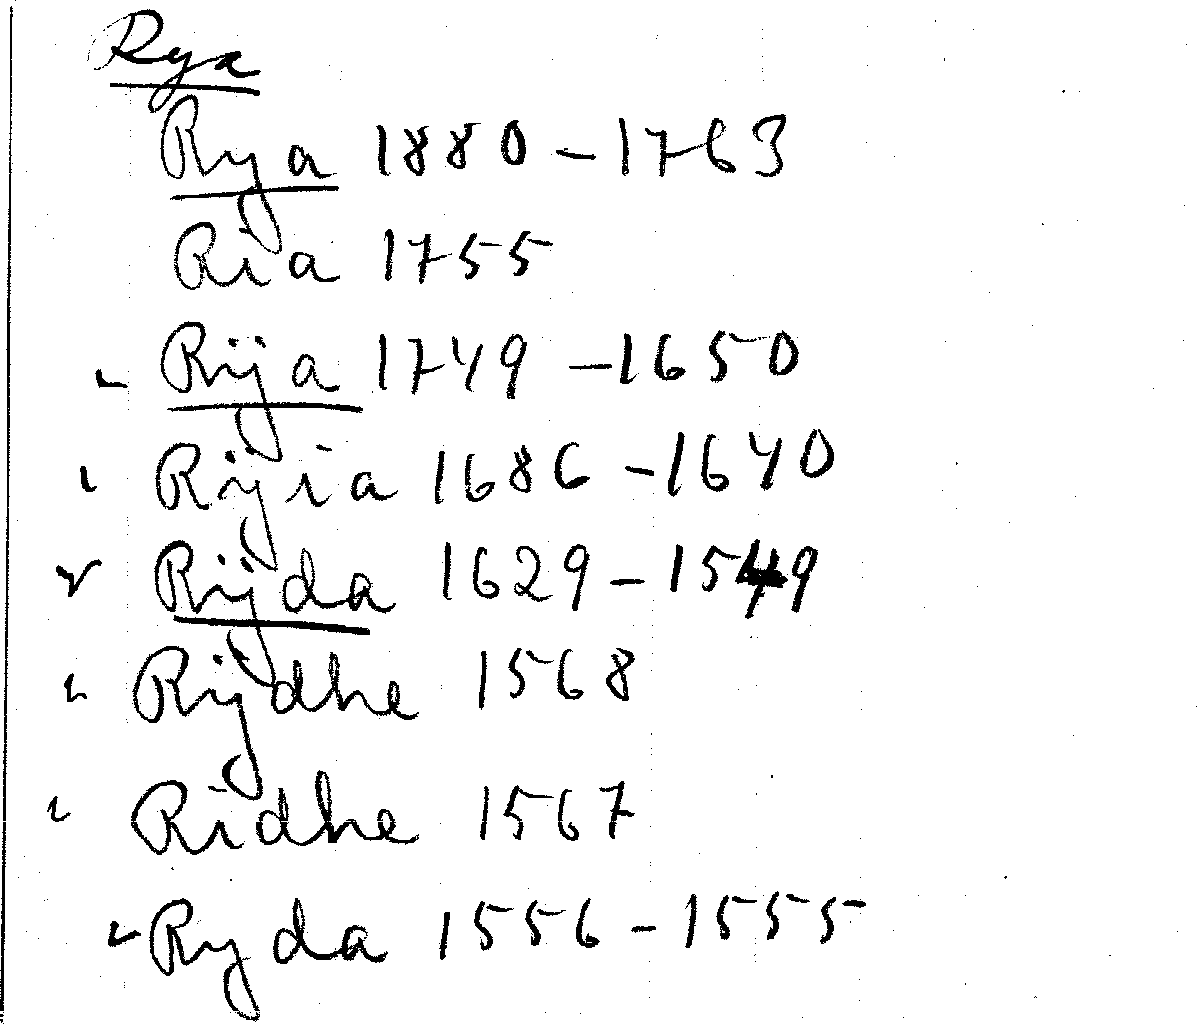 Rya
Rya 1880 – 1763
Ria 1755
Rija 1749 – 1650
Rijia 1686 – 1640
Rijda 1629 – 1549
Rijdhe 1568
Ridhe 1567
Ryda 1556 – 1555